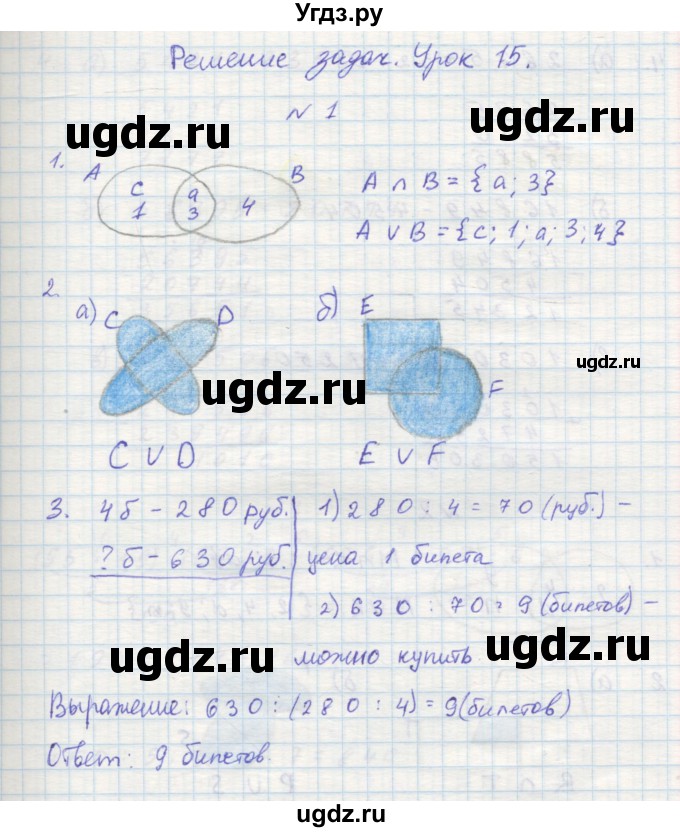 Угдз.ру
Решение задач. Урок 15.
N 1
ugdz.ru ugdz.ru
1. A B
c a 4
1 3
A ∩ B = {a; 3}
A ∪ B = {c; 1; a; 3; 4}
2. а) C D б) E
ugdz.ru
ugdz.ru
F
C ∪ D E ∪ F
3. 4б - 280 руб. 1) 280 : 4 = 70 (руб.) -
? б - 630 руб. цена 1 билета
2) 630 : 70 = 9 (билетов) -
ugdz.ru ugdz.ru
можно купить
Выражение: 630 : (280 : 4) = 9 (билетов)
Ответ: 9 билетов.
ugdz.ru